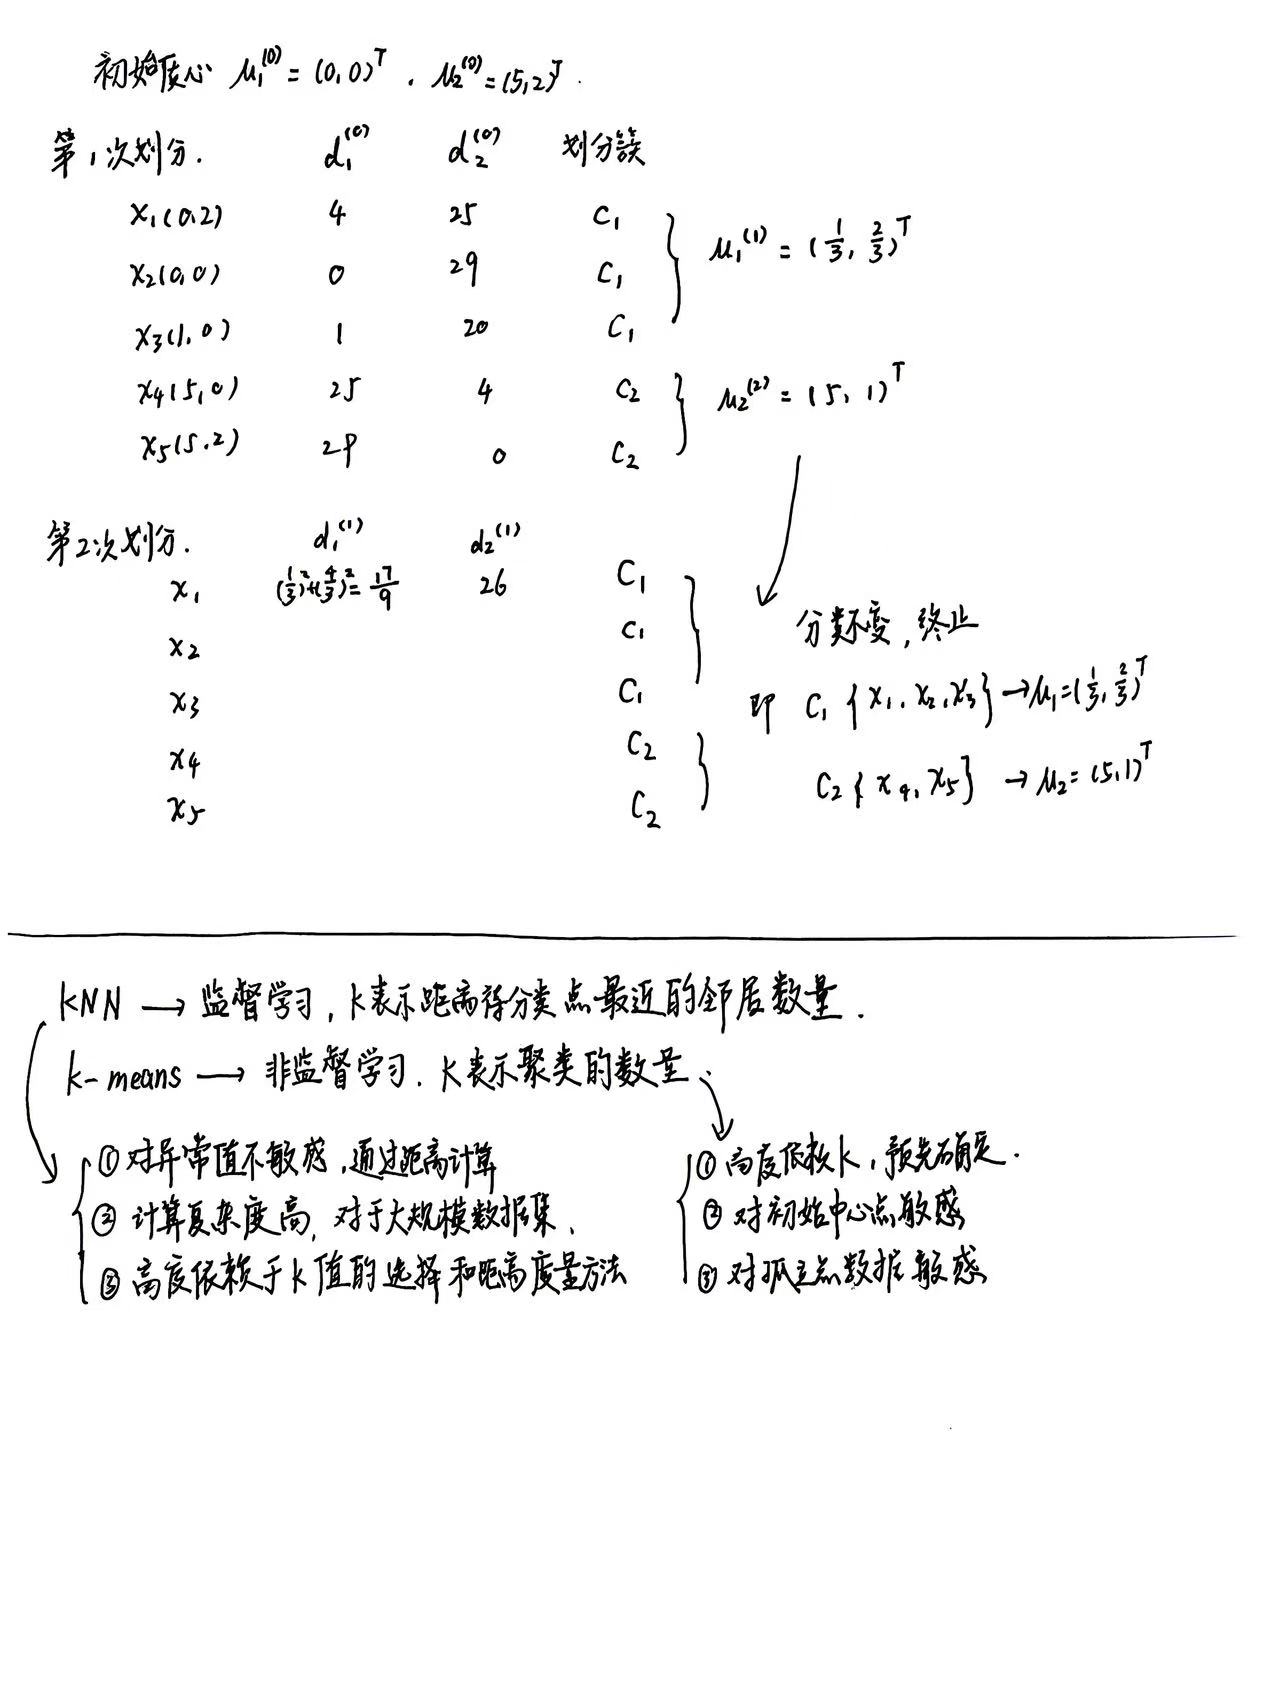 初始质心 μ₁⁽⁰⁾ = (0,0)ᵀ . μ₂⁽⁰⁾ = (5,2)ᵀ.
第1次划分. d₁⁽⁰⁾ d₂⁽⁰⁾ 划分簇
x₁(0,2) 4 25 C₁
μ₁⁽¹⁾ = (1/3, 2/3)ᵀ
x₂(0,0) 0 29 C₁
x₃(1,0) 1 20 C₁
x₄(5,0) 25 4 C₂
μ₂⁽²⁾ = (5, 1)ᵀ
x₅(5,2) 29 0 C₂
第2次划分. d₁⁽¹⁾ d₂⁽¹⁾
x₁ (1/3)²+(4/3)² = 17/9 26 C₁
x₂ C₁ 分类不变, 终止
x₃ C₁ 即 C₁ {x₁, x₂, x₃} → μ₁ = (1/3, 2/3)ᵀ
x₄ C₂
C₂ {x₄, x₅} → μ₂ = (5,1)ᵀ
x₅ C₂
KNN → 监督学习, k表示距离待分类点最近的邻居数量.
k-means → 非监督学习. k表示聚类的数量.
① 对异常值不敏感, 通过距离计算
② 计算复杂度高, 对于大规模数据集.
③ 高度依赖于k值的选择和距离度量方法
① 高度依赖k, 预先确定.
② 对初始中心点敏感
③ 对孤立点数据敏感